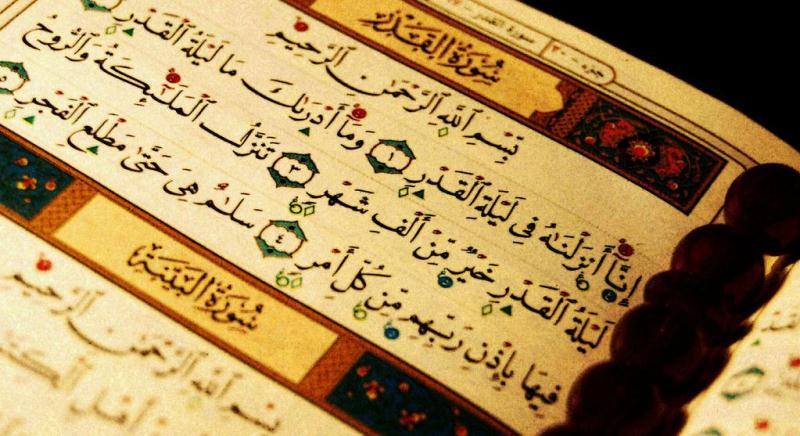 جزء ٣٠ سورة القدر
سُورَةُ الْقَدْرِ
بِسْمِ ٱللَّهِ ٱلرَّحْمَٰنِ ٱلرَّحِيمِ
إِنَّآ أَنزَلْنَٰهُ فِى لَيْلَةِ ٱلْقَدْرِ ١ وَمَآ أَدْرَىٰكَ مَا لَيْلَةُ ٱلْقَدْرِ
لَيْلَةُ ٱلْقَدْرِ خَيْرٌ مِّنْ أَلْفِ شَهْرٍ ٣ تَنَزَّلُ ٱلْمَلَٰٓئِكَةُ وَٱلرُّوحُ
فِيهَا بِإِذْنِ رَبِّهِم مِّن كُلِّ أَمْرٍ ٤ سَلَٰمٌ هِىَ حَتَّىٰ مَطْلَعِ ٱلْفَجْرِ ٥
سُورَةُ الْبَيِّنَةِ
بِسْمِ ٱللَّهِ ٱلرَّحْمَٰنِ ٱلرَّحِيمِ
مِنْ أَهْلِ